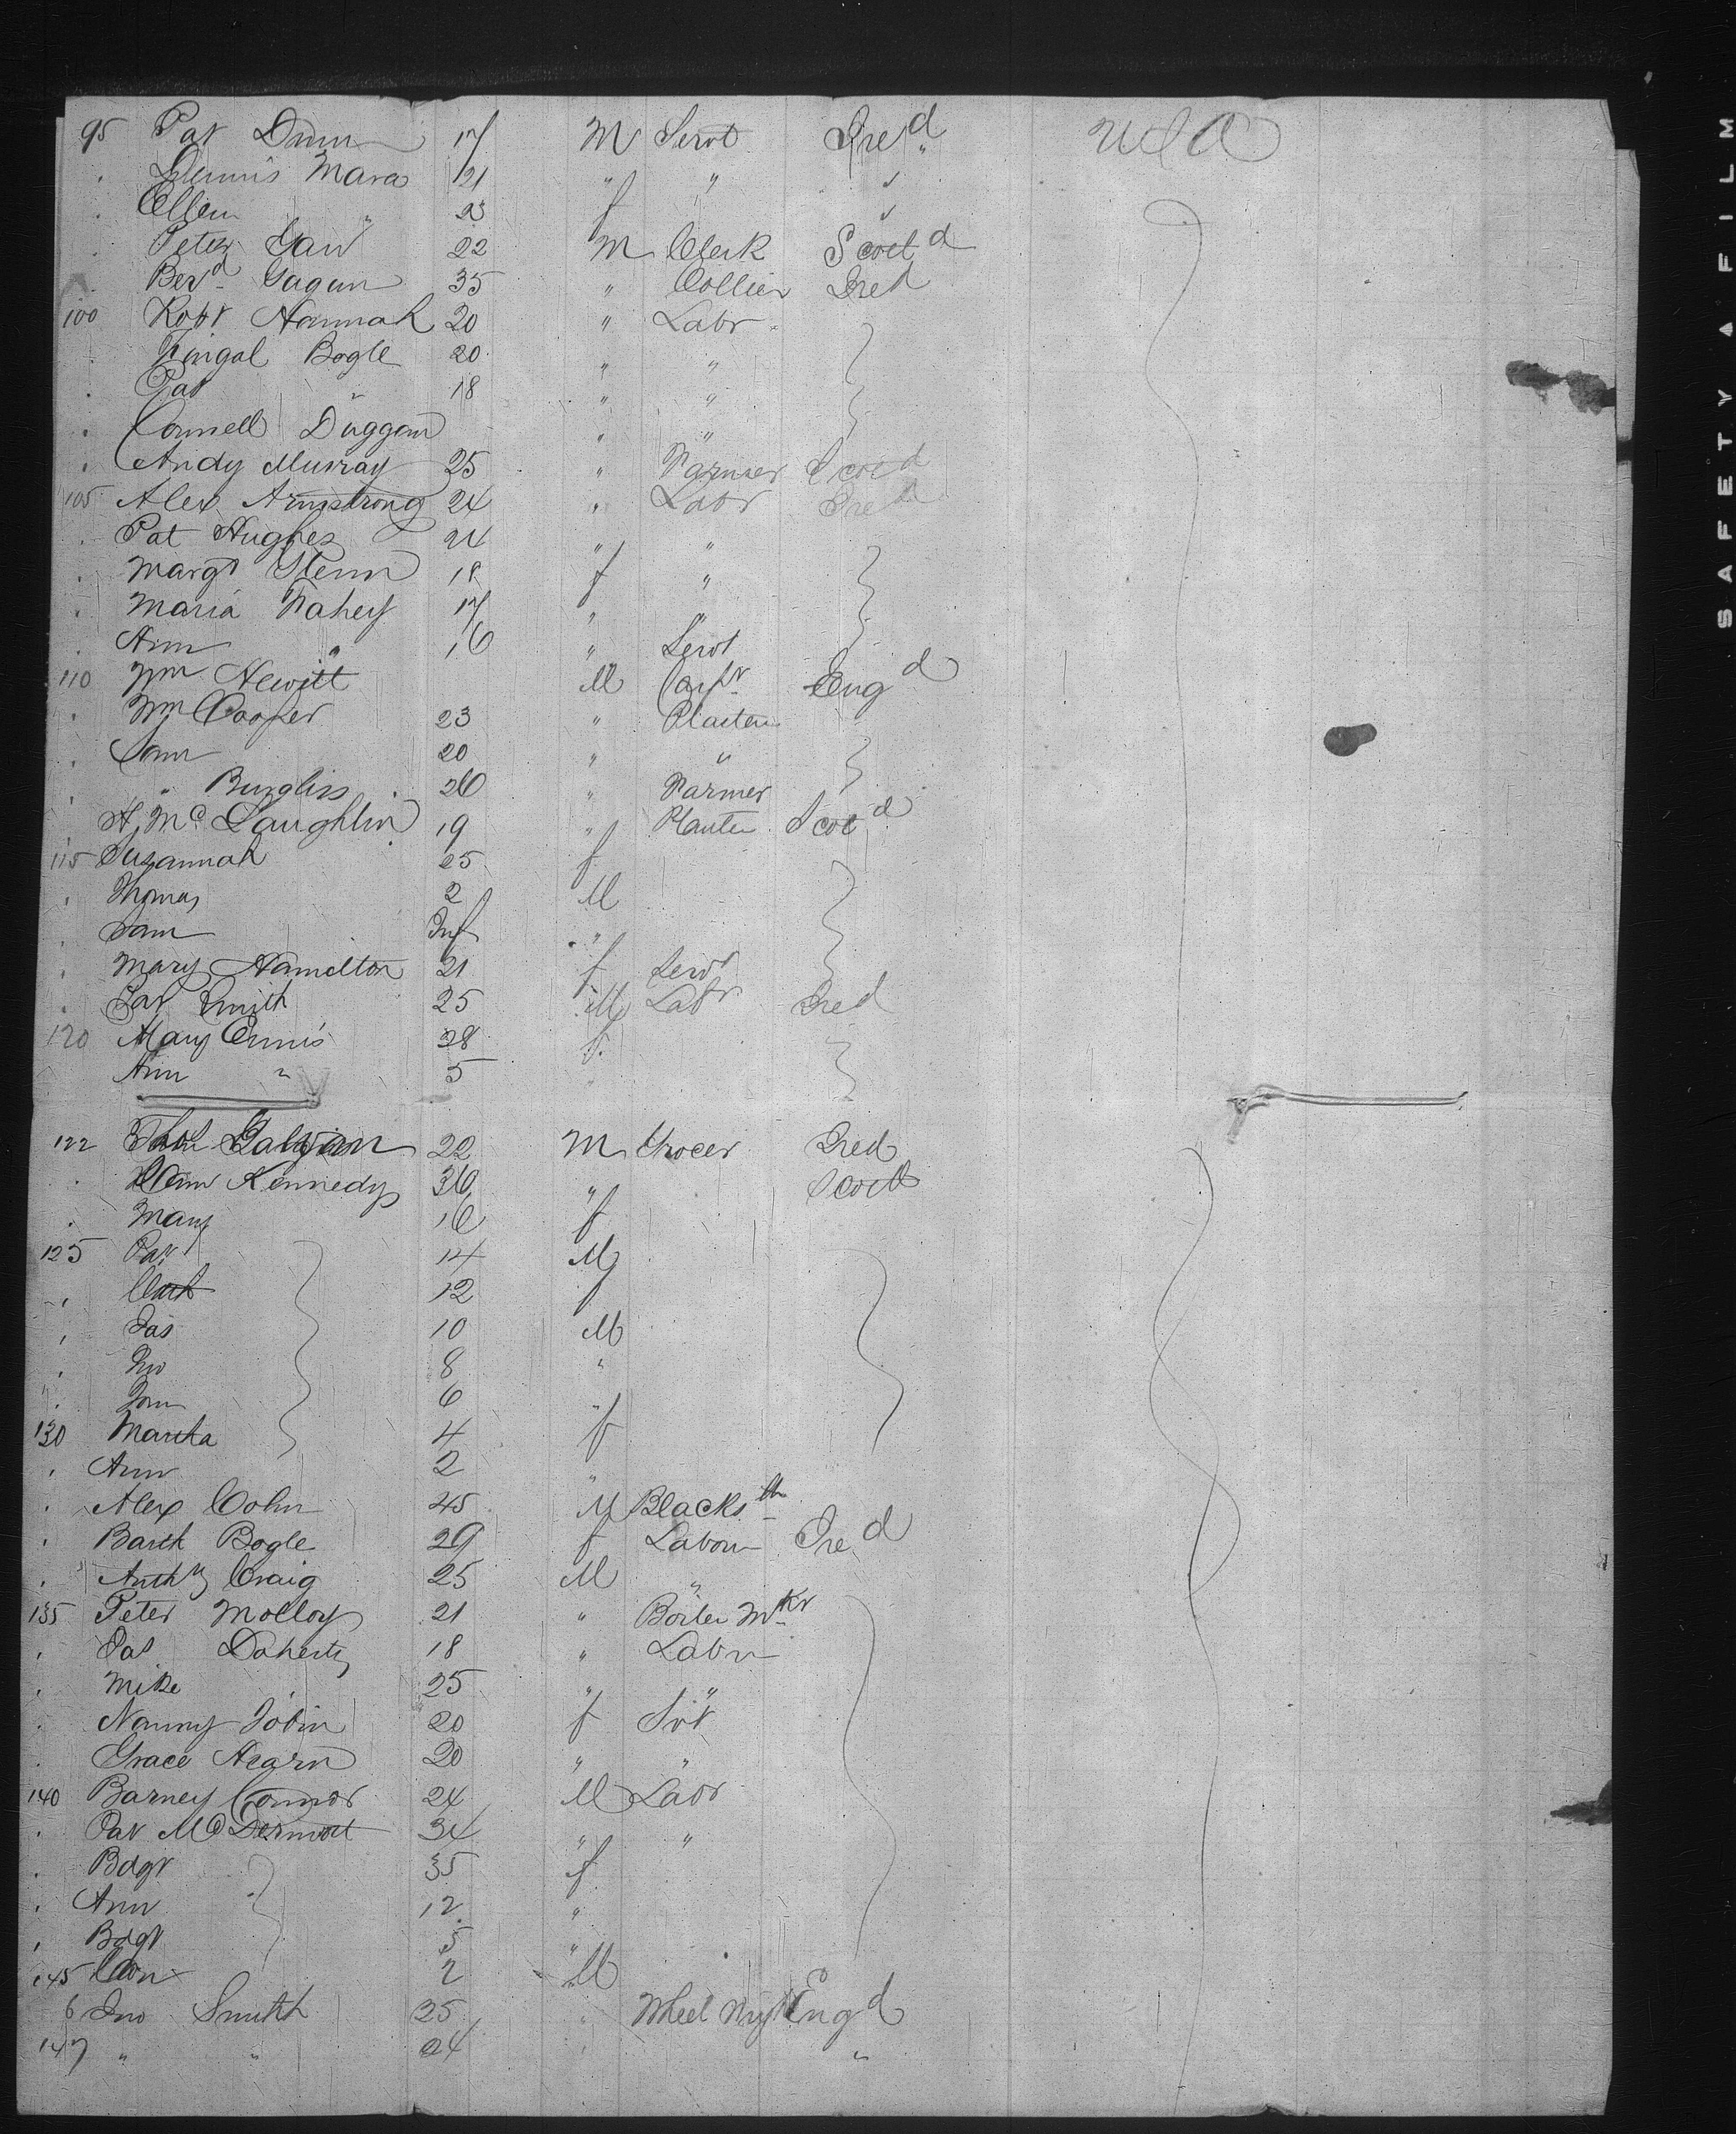 95 Pat Dunn 17 M Servt Ired USA
Dennis Mara 21 " " "
Ellen " 23 f " "
Peter Law 22 M Clerk Scotd
Bernd Gagan 35 " Collier Ired
100 Robt Hannah 20 " Labr
Fingal Bogle 20 " "
Pat " 18 " "
Connell Duggan " "
Andy Murray 25 " Farmer Scotd
105 Alex Armstrong 24 " Labr Ired
Pat Hughes 24 " "
Margt Glenn 18 f "
Maria Fahey 17 " "
Ann " 16 " Servt
110 Wm Hewitt M Carpr Engd
Wm Cooper 23 " Plaster
Sam 20 " "
" 26 " Farmer
A McLaughlin 19 " Planter Scotd
115 Susannah 25 f
Thomas 2 M
Sam Inf "
Mary Hamilton 21 f Servt
Pat Smith 25 M Labr Ired
120 Mary Ennis 28 f
Ann " 5 "
122 Thos Galvan 22 M Grocer Ired
Kennedy 36 " Scotd
Mary 16 f
125 Pat 14 M
Cath 12 f
Jas 10 M
Jno 8 "
6 "
130 Martha 4 f
Ann 2 "
Alex Cohn 45 M Blacksth
Barth Bogle 29 f Labour Ired
Anthy Craig 25 M "
135 Peter Molloy 21 " Boiler Mkr
Jas Doherty 18 " Labr
Mike 25 " "
Nanny Tobin 20 f Svt
Grace Hearn 20 " "
140 Barney Connor 24 M Labr
Pat McDermott 34 " "
Bdgt 35 f
Ann 12 "
Bdgt 5 "
145 2 M
6 Jno Smith 25 " Wheel Wrigt Engd
147 " " 24 " "
SAFETY A FILM